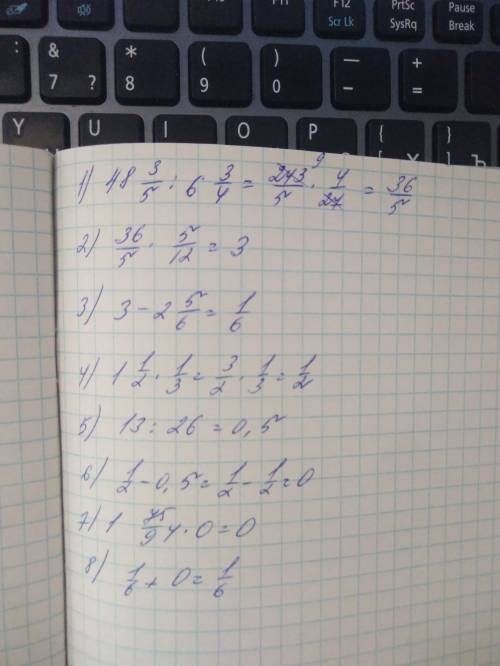 F12
Scr Lk
PrtSc
SysRq
Pause
Break
:
;
&
7 ?
*
8
(
9
)
0
—
-
+
=
Y
U
I
O
P
{
[
}
Ъ
1) 48 3/5 : 6 3/4 = 243/5 · 4/27 = 36/5
9
2) 36/5 · 5/12 = 3
3) 3 - 2 5/6 = 1/6
4) 1 1/2 · 1/3 = 3/2 · 1/3 = 1/2
5) 13 : 26 = 0,5
6) 1/2 - 0,5 = 1/2 - 1/2 = 0
7) 1 75/94 · 0 = 0
8) 1/6 + 0 = 1/6